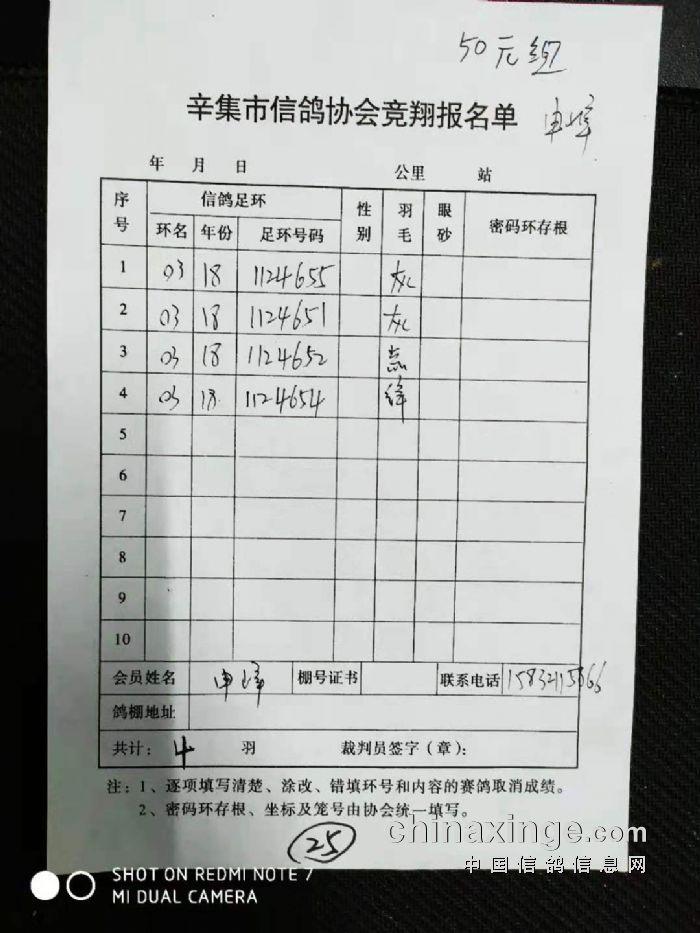 50元组
辛集市信鸽协会竞翔报名单
年 月 日 公里 站
序号 信鸽足环 性别 羽毛 眼砂 密码环存根
环名 年份 足环号码
1 03 18 1124655 灰
2 03 18 1124651 灰
3 03 18 1124652 点
4 03 18 1124654 绛
5
6
7
8
9
10
会员姓名 申 棚号证书 联系电话
鸽棚地址
共计: 4 羽 裁判员签字(章):
注:1、逐项填写清楚、涂改、错填环号和内容的赛鸽取消成绩。
2、密码环存根、坐标及笼号由协会统一填写。
25
chinaxinge.com
中国信鸽信息网
SHOT ON REDMI NOTE 7
MI DUAL CAMERA